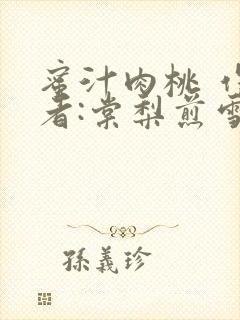 蜜汁肉桃 作
者:棠梨煎雪
孫義珍